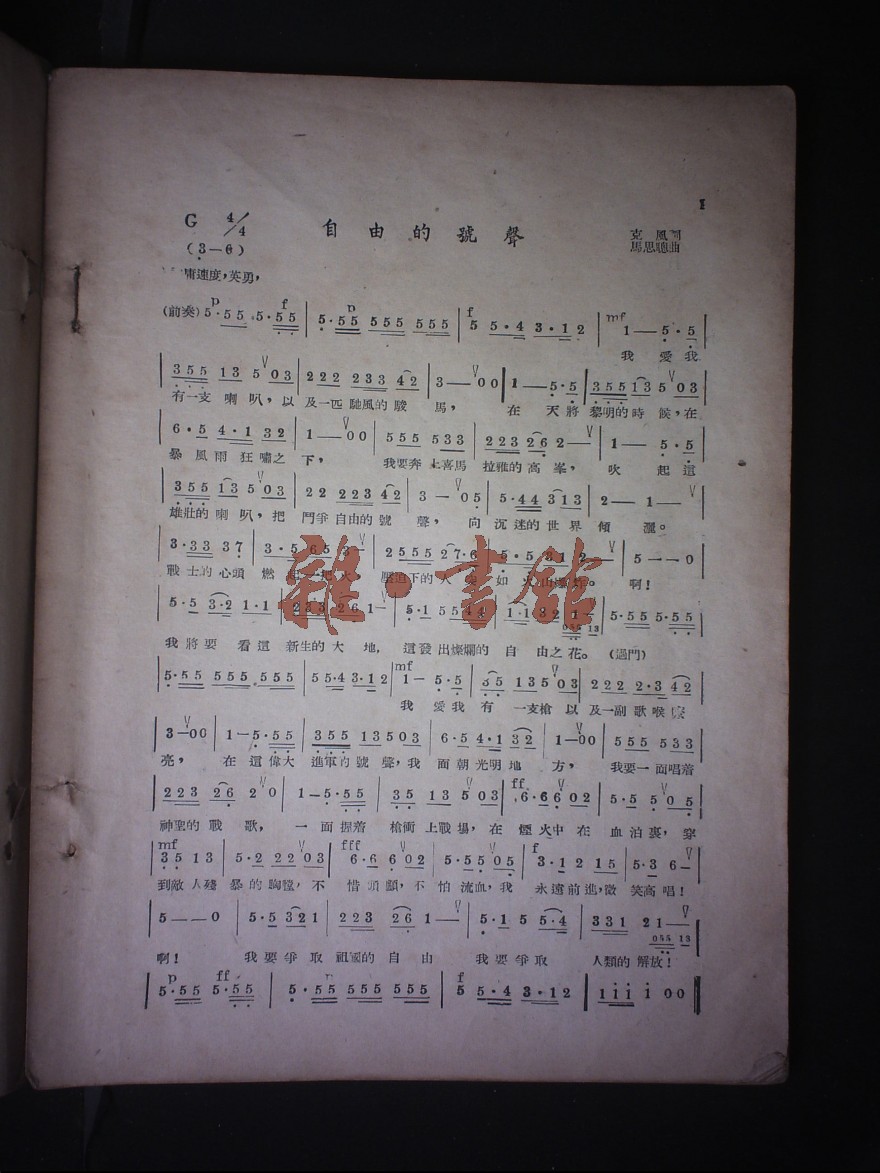 1
G 4/4
自由的號聲
克風詞
(3—6)
馬思聰曲
庸速度，英勇，
p f p f mf
(前奏) 5·55 5·55 | 5·55 555 555 | 5 5·4 3·12 | 1— 5·5 |
我 愛我
355 13 5 03 | 222 233 42 | 3—00 | 1—5·5 | 355 13 5 03
有一支 喇叭，以 及一匹馳風的駿 馬， 在 天將 黎明的時候，在
6·5 4·1 32 | 1—00 | 555 533 | 223 26 2— | 1— 5·5 |
暴風雨狂嘯之 下， 我要奔上喜馬 拉雅的高峯， 吹 起這
355 13 5 03 | 22 223 42 | 3—05 | 5·44 313 | 2—1— |
雄壯的喇叭，把 鬥爭自由的號 聲，向 沉迷的世界 傾 灑。
3·33 37 | 3·5 65 3— | 2555 27·6 | 5·5 31 2— | 5——0
戰士的心頭 燃 把火， 壓迫下的大 如火山 。 啊！
5·5 3·2 1·1 | 233 26 1— | 5·1 55 | 1·1 32 1— | 5·55 5·55
055 13
我將要看這 新生的大地， 這發出燦爛的 自由之花。 (過門)
mf
5·55 555 555 | 55·4 3·12 | 1— 5·5 | 35 135 03 | 222 2·3 42 |
我 愛我 有一支槍以 及一副歌喉
3—00 | 1—5·55 | 355 13503 | 6·5 4·1 32 | 1—00 | 555 533
亮， 在這偉大 進軍的號聲，我 面朝光明地 方， 我要一面唱着
ff
223 26 2 0 | 1—5·55 | 35 13 5 03 | 6·6 6 02 | 5·5 5 05
神聖的戰歌， 一面握着 槍衝上戰場，在 煙火中在 血泊裏，穿
mf fff f
35 13 | 5·2 22 03 | 6·6 6 02 | 5·55 05 | 3·12 15 | 5·3 6—
到敵人殘 暴的胸膛，不 惜頭顱，不 怕流血，我 永遠前進，微 笑高唱！
5——0 | 5·5 321 | 223 26 1— | 5·1 5 5·4 | 331 21—
055 13
啊！ 我要爭取 祖國的自由 我要爭取 人類的解放！
p ff f
5·55 5·55 | 5·55 555 555 | 5 5·4 3·12 | 111 1 00 ||
雜·書館